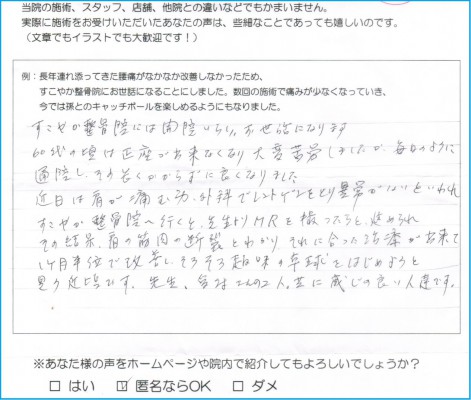 当院の施術、スタッフ、店舗、他院との違いなどでもかまいません。
実際に施術をお受けいただいたあなたの声は、些細なことであっても嬉しいのです。
（文章でもイラストでも大歓迎です！）
例：長年連れ添ってきた腰痛がなかなか改善しなかったため、
すこやか整骨院にお世話になることにしました。数回の施術で痛みが少なくなっていき、
今では孫とのキャッチボールを楽しめるようにもなりました。
すこやか整骨院には開院いらい、お世話になります
60代の頃は正座が出来なくなり大変苦労しましたが毎日のように
通院し、その
良くなりました
近日は肩が痛む為、外科でレントゲンをとり異常がないといわれ
すこやか整骨院へ行くと、先生よりMRを撮ったらと、進められ
その結果、肩の筋肉の断裂とわかり それに合った治療が出来て
1ヶ月半位で改善し、そろそろ趣味の卓球をはじめようと
思う近頃です。先生、
2人、共に感じの良い人達です。
※あなた様の声をホームページや院内で紹介してもよろしいでしょうか？
□ はい ☑ 匿名ならOK □ ダメ